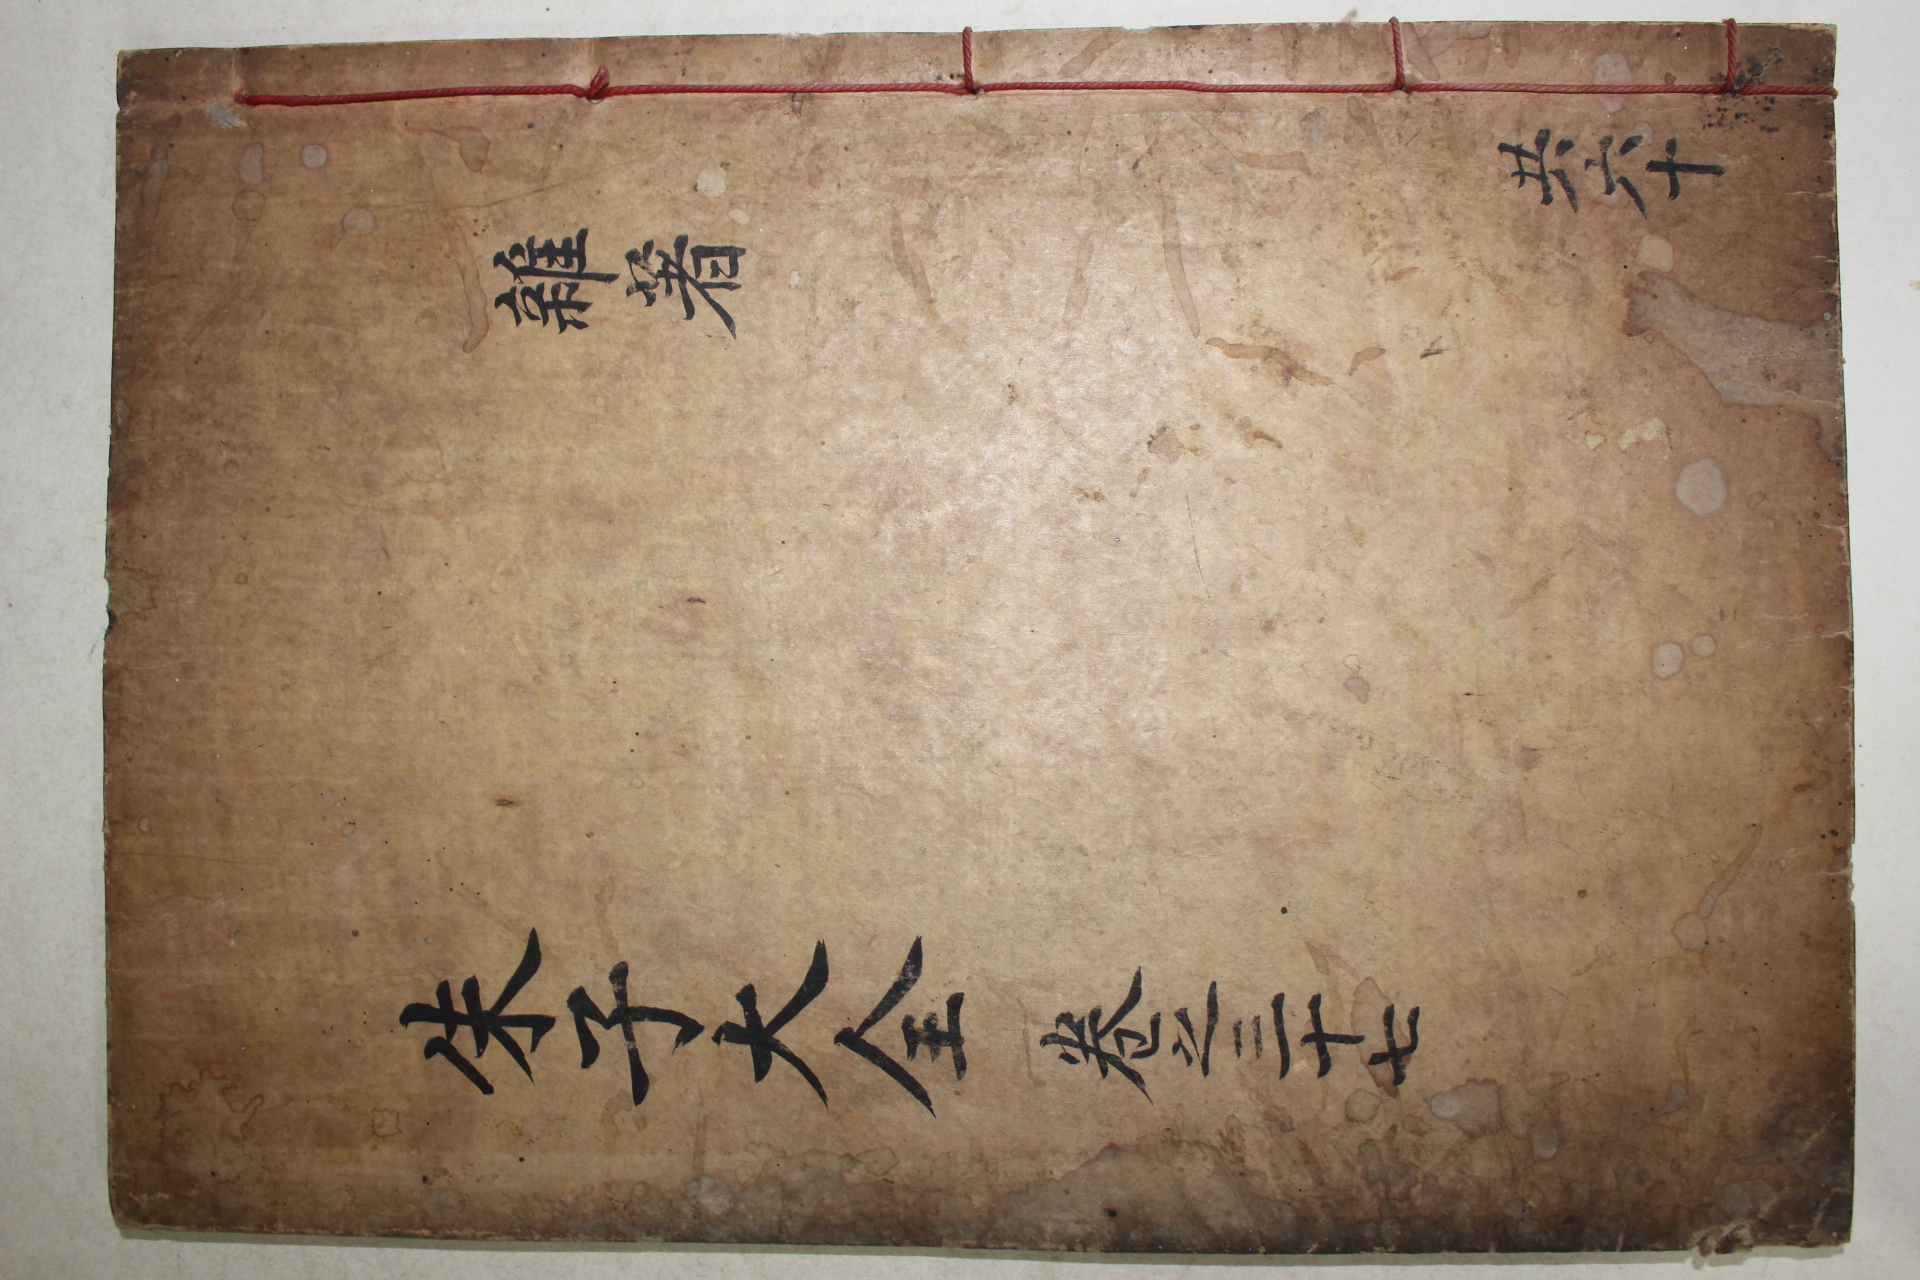 朱子大全 卷之三十七
雜著
共六十